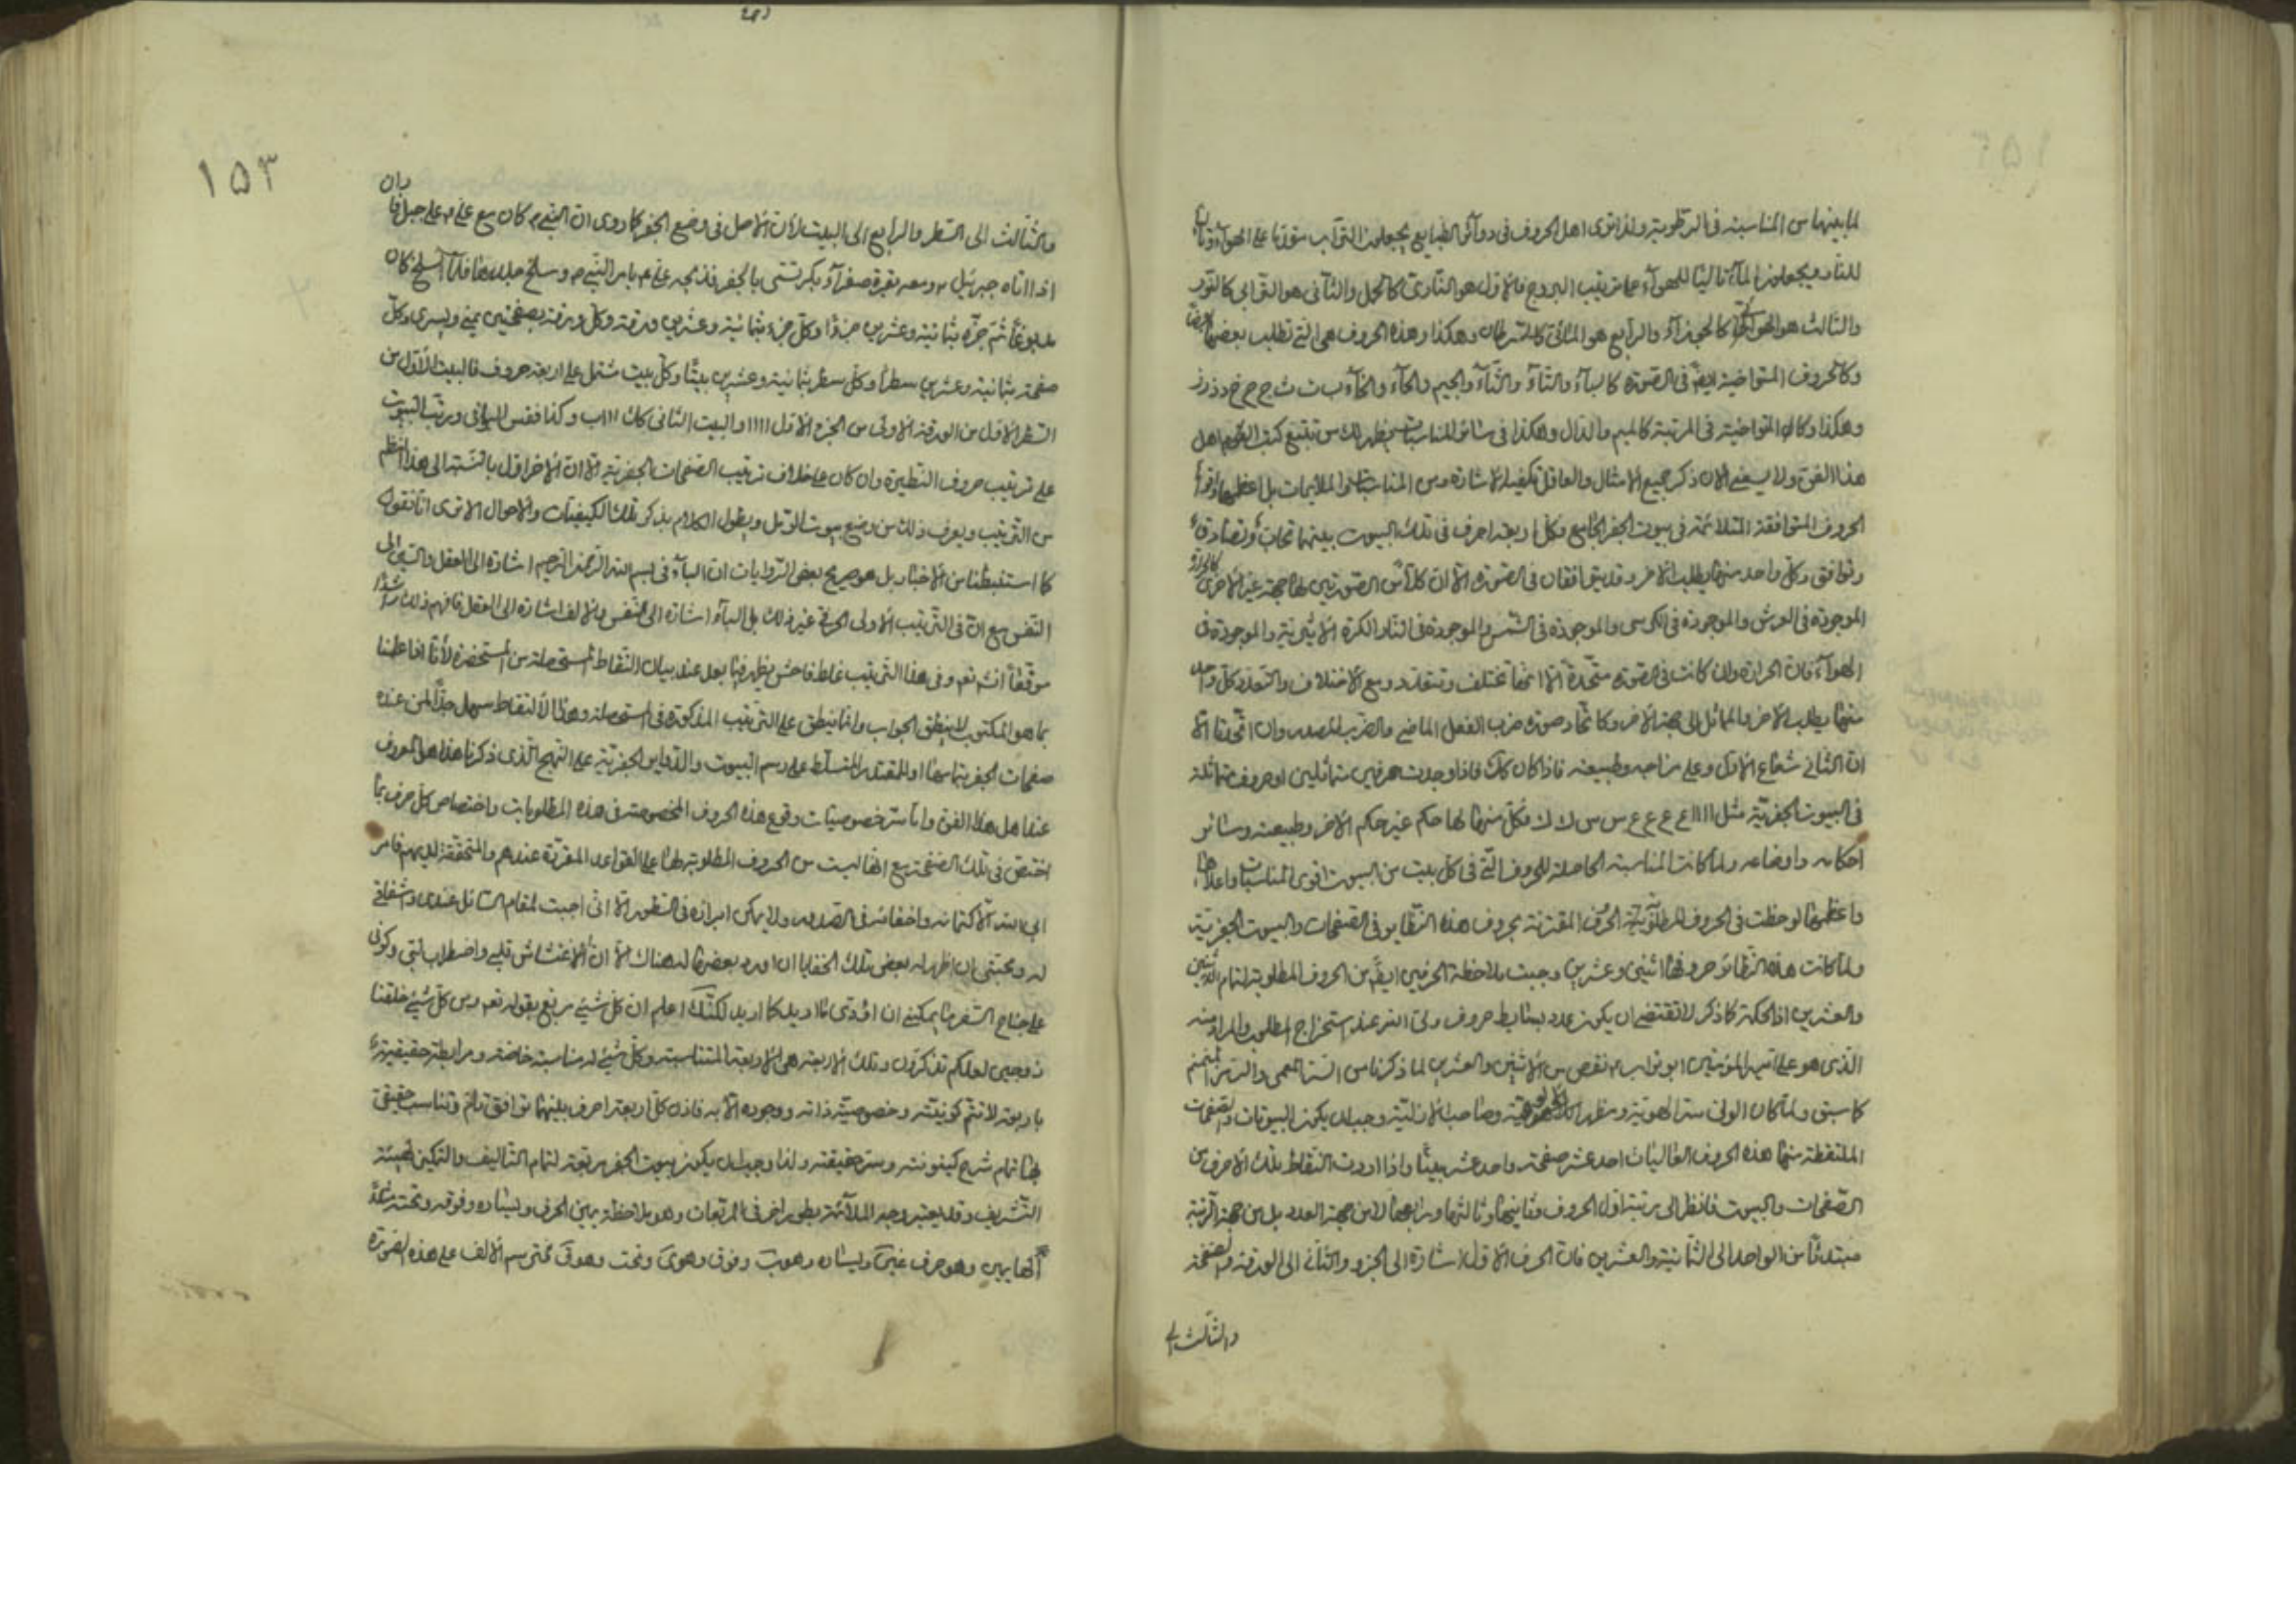 لما بينهما من المناسبة في الرطوبة ولذا ترى اهل الحروف في دوائر الطبايع يجعلون التراب مقدما على الهواء وثانيا
للنار ويجعلون الماء تاليا للهواء على ترتيب البروج فالاول هو الناري كالحمل والثاني هو الترابي كالثور
والثالث هو الهوائي كالجوزاء والرابع هو المائي كالسرطان وهكذا وهذه الحروف هي التي تطلب بعضها بعضا
وكالحروف المتواخية ايضا في الصورة كالباء والتاء والثاء والجيم والحاء والخاء ب ت ث ج ح خ د ذ ر ز
وهكذا وكالمتواخية في المرتبة كالميم والدال وهكذا في سائر المناسبات يظهر لك من تتبع كتب القوم اهل
هذا الفن ولا يسعني الان ذكر جميع الامثال والعاقل تكفيه الاشارة ومن المناسبات والملايمات بل اعظمها واقواها
الحروف المتوافقة المتلائمة في بيوت الجفر الجامع وكل اربعة احرف في تلك البيوت بينهما تحابّ وتصادق
وتوافق وكل واحد منها يطلب الاخر وقد يتوافقان في الصورة الا ان كلا من الصورتين لها جهة غير الاخرى كالحرارة
الموجودة في العرش والموجودة في الكرسي والموجودة في الشمس والموجودة في النار الكرة الاثيرية والموجودة في
الهواء فان الحرارة وان كانت في الصورة متحدة الا انها تختلف وتتعدد ومع الاختلاف والتعدد كل واحد
منها يطلب الاخر والمائل الى جهة الاخر وكاتحاد صورة ضرب الفعل الماضي والضرب المصدر وان اتحدتا الا
ان الثاني شعاع الاول وعلى مزاجه وطبيعته فاذا كان كذلك فاذا وجدت حرفين متماثلين او حروف متماثلة
في البيوت الجفرية مثل ا ا ا ا ع ع ع ع س س ك ك فكل منها لها حكم غير حكم الاخر وطبيعته وسائر
احكامه واوضاعه ولما كانت المناسبة الحاصلة للحروف التي في كل بيت من البيوت اقوى المناسبات واعلاها
واعظمها لوحظت في الحروف المطلوبة الحروف المقترنة بحروف هذه النظاير في الصفحات والبيوت الجفرية
ولما كانت هذه النظائر حروفها اثنين وعشرين وجبت ملاحظة الحرفين ايضا من الحروف المطلوبة لتمام الاثنين
والعشرين اذ الحكمة كما ذكر لا تقتضي ان يكون عدد بسايط حروف ولي الله عند استخراج المطلوب والمراد منه
الذي هو على امير المؤمنين ابو تراب ع نقص من الاثنين والعشرين لما ذكرنا من السر المعمى والرمز المنمنم
كما سبق ولما كان الولي سر الهوية ومظهر الالوهية وصاحب الازلية وجب ان يكون البيوتات والصفحات
الملتقطة منها هذه الحروف العاليات احد عشر صفحة واحد عشر بيتا واذا اردت التقاط تلك الاحرف من
الصفحات والبيوت فانظر الى مرتبة اول الحروف وثانيها وثالثها ورابعها لا من جهة العدد بل من جهة الرتبة
مبتدئا من الواحد الى الثانية والعشرين فان الحرف الاول اشارة الى الجزو والثاني الى الورقة والصفحة
والثالث الى
١٥٣
والثالث الى السطر والرابع الى البيت لأن الاصل في وضع الجفر كما روى ان النبي ص كان مع علي ع على جبل فاران
اذ اتاه جبرئيل ع ومعه بقرة صفراء بكر تسمى بالجفر فذبحه علي ع بامر النبي ص وسلخ جلدها فلما انسلخ كان
مدبوغا ثم جزّه بثمانية وعشرين جزوا وكل جزء بثمانية وعشرين ورقة وكل ورقة بصفحتين يمنى ويسرى وكل
صفحة بثمانية وعشرين سطرا وكل سطر بثمانية وعشرين بيتا وكل بيت مشتمل على اربعة حروف فالبيت الاول من
السطر الاول من الورقة الاولى من الجزء الاول ا ا ا ا والبيت الثاني كان ا ا ا ب وكذا فقس البواقي ورتب البيوت
على ترتيب حروف النظيرة وان كان على خلاف ترتيب الصفحات الجفرية الا ان الاخر اول بالنسبة الى هذا النظم
من الترتيب ويعرف ذلك من وضع بيوت الرمل ويطول الكلام بذكر تلك الكيفيات والاحوال الا ترى انا نقول
كما استنبطنا من الاخبار بل هو صريح بعض الروايات ان الباء في بسم الله الرحمن الرحيم اشارة الى العقل والسين الى
النفس مع ان في الترتيب الاولى الحرفي غير ذلك بل الباء اشارة الى النفس والالف اشارة الى العقل فافهم ذلك راشدا
موفقا انشاء الله تعالى وفي هذا الترتيب غلط فاحش يظهر فيما بعد عند بيان التقاط المستحصلة من المستحضرة لأنا اذا عملنا
بما هو المكتوب لم ينطق الجواب وانما ينطق على الترتيب المذكورة في المستحصلة وهذا الالتقاط سهل جدا لمن عنده
صفحات الجفر بتمامها او المقتدر المتسلط على رسم البيوت والدواير الجفرية على النهج الذي ذكرنا هذا هو المعروف
عند اهل هذا الفن واما سر خصوصيات وقوع هذه الحروف المخصوصة في هذه المطلوبات واختصاص كل حرف بما
اختص في تلك الصفحة مع انها ليست من الحروف المطلوبة لها على القواعد المقررة عندهم والمتحققة لديهم فامر
ابى الله الا كتمانه واخفائه في الصدور ولا يمكن ابرازه في السطور الا اني اجبت لمقام السائل عندي واشفاقي
له ومحبتي ان اظهر له بعض تلك الخفايا ان اورد بعضها له هناك الا ان الاغتشاش قلبي واضطراب لبي وكوني
على جناح السفر ما يمكنني ان اؤدي ما اريد كما اريد لكنك اعلم ان كل شيء مربع بقوله تعالى ومن كل شيء خلقنا
زوجين لعلكم تذكرون وتلك الاربعة هي الاربعة المتناسبة وكل شيء له مناسبة خاصة ومرابطة حقيقية
باربعة لا تتم كونيته وخصوصية ذاته ووجوده الا به فاذن كل اربعة احرف بينهما توافق تام وتناسب حقيقي
بها تمام شرح كينونته وسر حقيقته ولذا وجب ان يكون بيوت الجفر مربعة لتمام التأليف والتمكين لهيئة
التشريف وقد يعتبر وجه الملائمة بطور اخر في المربعات وهو بملاحظة يمين الحرف ويساره وفوقه وتحته مثلا
الها يمين وهو حرف غين ويساره وهو ب وفوق وهو ى وتحت وهو ق فمتى رسم الالف على هذه الصورة